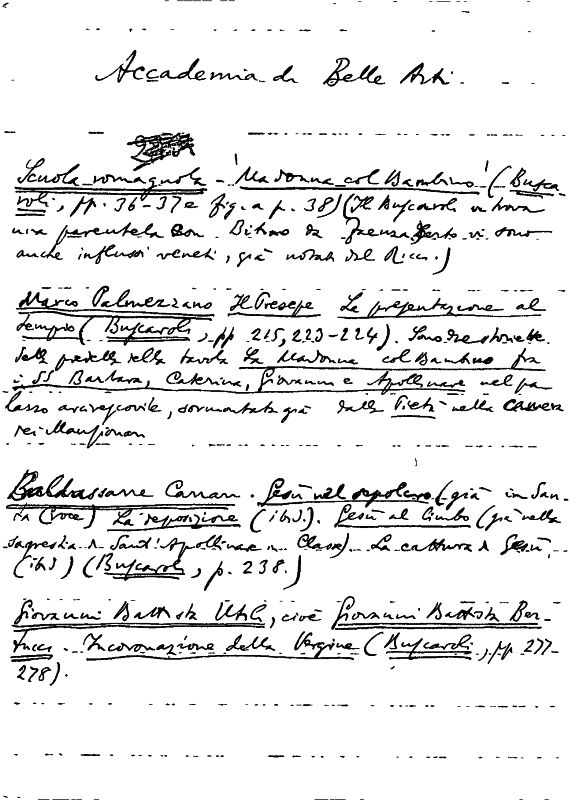 Accademia di Belle Arti
Scuola romagnola - "Madonna col Bambino" (Busca-
roli, pp. 36-37 e fig. a p. 38) (Il Buscaroli vi trova
una parentela con Bitino da Faenza. Certo vi sono
anche influssi veneti, già notati dal Ricci.)
Marco Palmezzano Il Presepe La presentazione al
tempio (Buscaroli, pp 215, 223-224). Sono due storiette
della predella della tavola La Madonna col Bambino fra
i SS Barbara, Caterina, Giovanni e Apollinare nel pa-
lazzo arcivescovile, sormontata già dalla Pietà nella camera
dei Mansionari
Baldassarre Carrari. Gesù nel sepolcro (già in San-
ta Croce) La deposizione (ibid.). Gesù al limbo (già nella
sagrestia di Sant'Apollinare in Classe). La cattura di Gesù
(ibid) (Buscaroli, p. 238.)
Giovanni Battista Utili, cioè Giovanni Battista Ber-
tucci. Incoronazione della Vergine (Buscaroli, pp 277-
278).